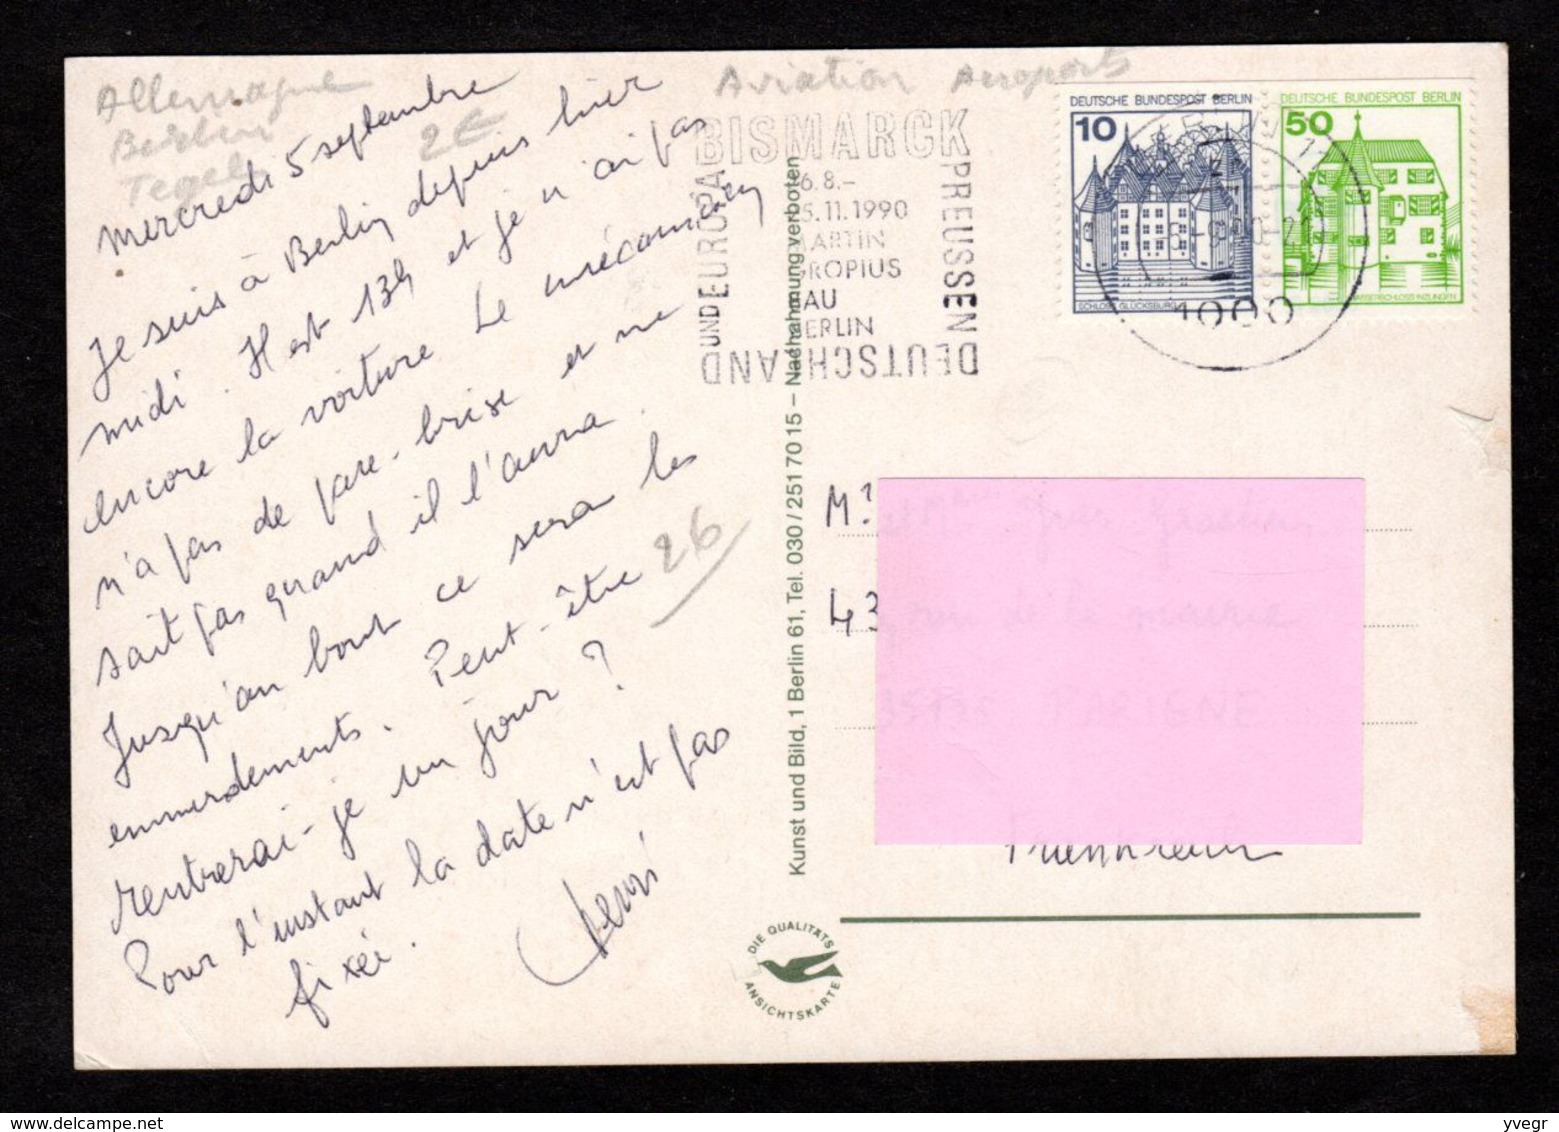 Allemagne
Berlin
Tegel
2€
Aviation Aeroports
mercredi 5 septembre
Je suis à Berlin depuis hier
midi. Il est 13h et je n'ai pas
encore la voiture. Le mécanicien
n'a pas de pare-brise et ne
sait pas quand il l'aura.
Jusqu'au bout ce sera les
emmerdements. Peut-être
rentrerai-je un jour ?
Pour l'instant la date n'est pas
fixée.
26
BISMARCK
PREUSSEN
DEUTSCHLAND
UND EUROPA
6.8.-
5.11.1990
MARTIN
GROPIUS
BAU
BERLIN
1000
DEUTSCHE BUNDESPOST BERLIN
10
SCHLOSS GLÜCKSBURG
DEUTSCHE BUNDESPOST BERLIN
50
WASSERSCHLOSS INZLINGEN
Kunst und Bild, 1 Berlin 61, Tel. 030/251 70 15 – Nachahmung verboten
43 rue de la mairie
PARIGNE
Frankreich
DIE QUALITÄTS
ANSICHTSKARTE
yvegr